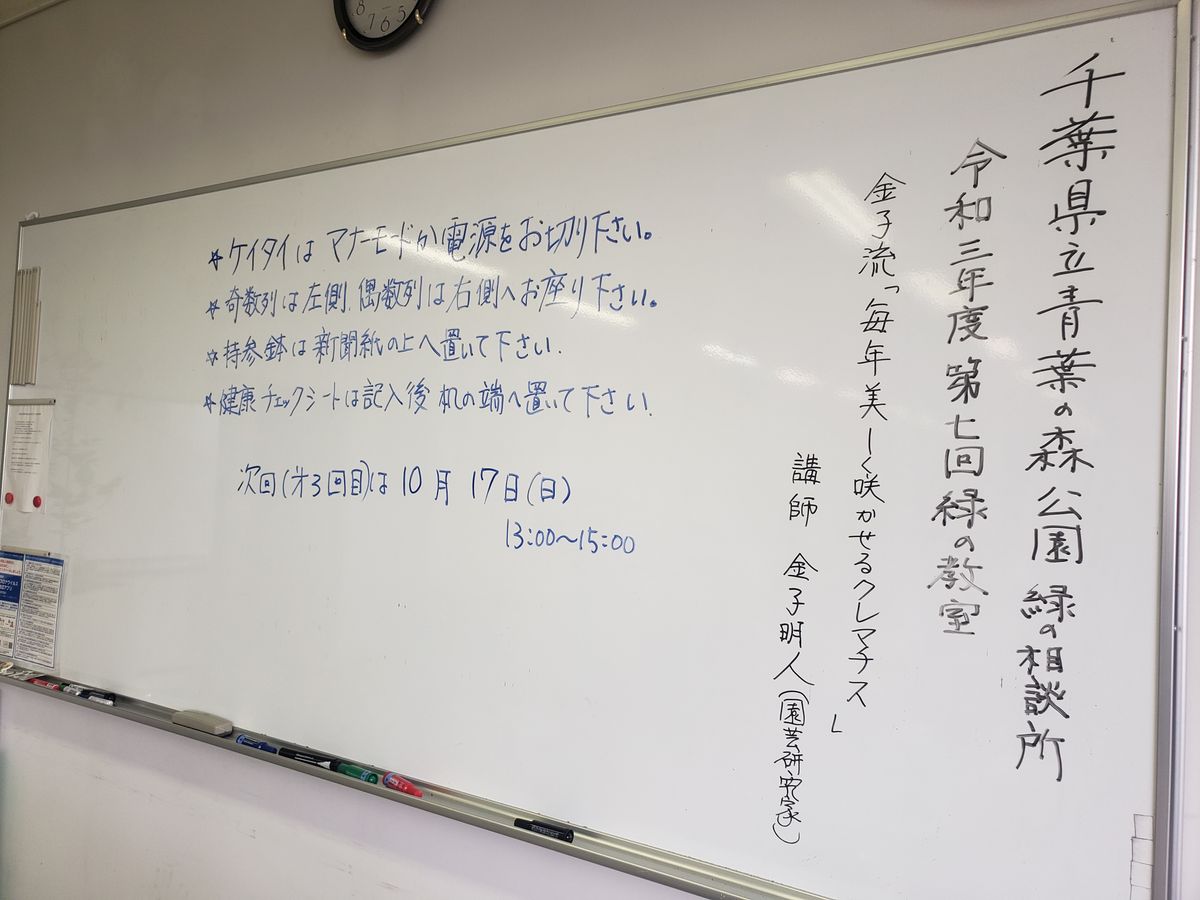 千葉県立青葉の森公園 緑の相談所
令和三年度 第七回緑の教室
金子流「毎年美しく咲かせるクレマチス」
講師 金子明人(園芸研究家)
☆ケイタイはマナーモードか電源をお切り下さい。
☆奇数列は左側、偶数列は右側へお座り下さい。
☆持参鉢は新聞紙の上へ置いて下さい.
☆健康チェックシートは記入後机の端へ置いて下さい.
次回(才3回目)は10月17日(日)
13:00〜15:00
8 7 6 5